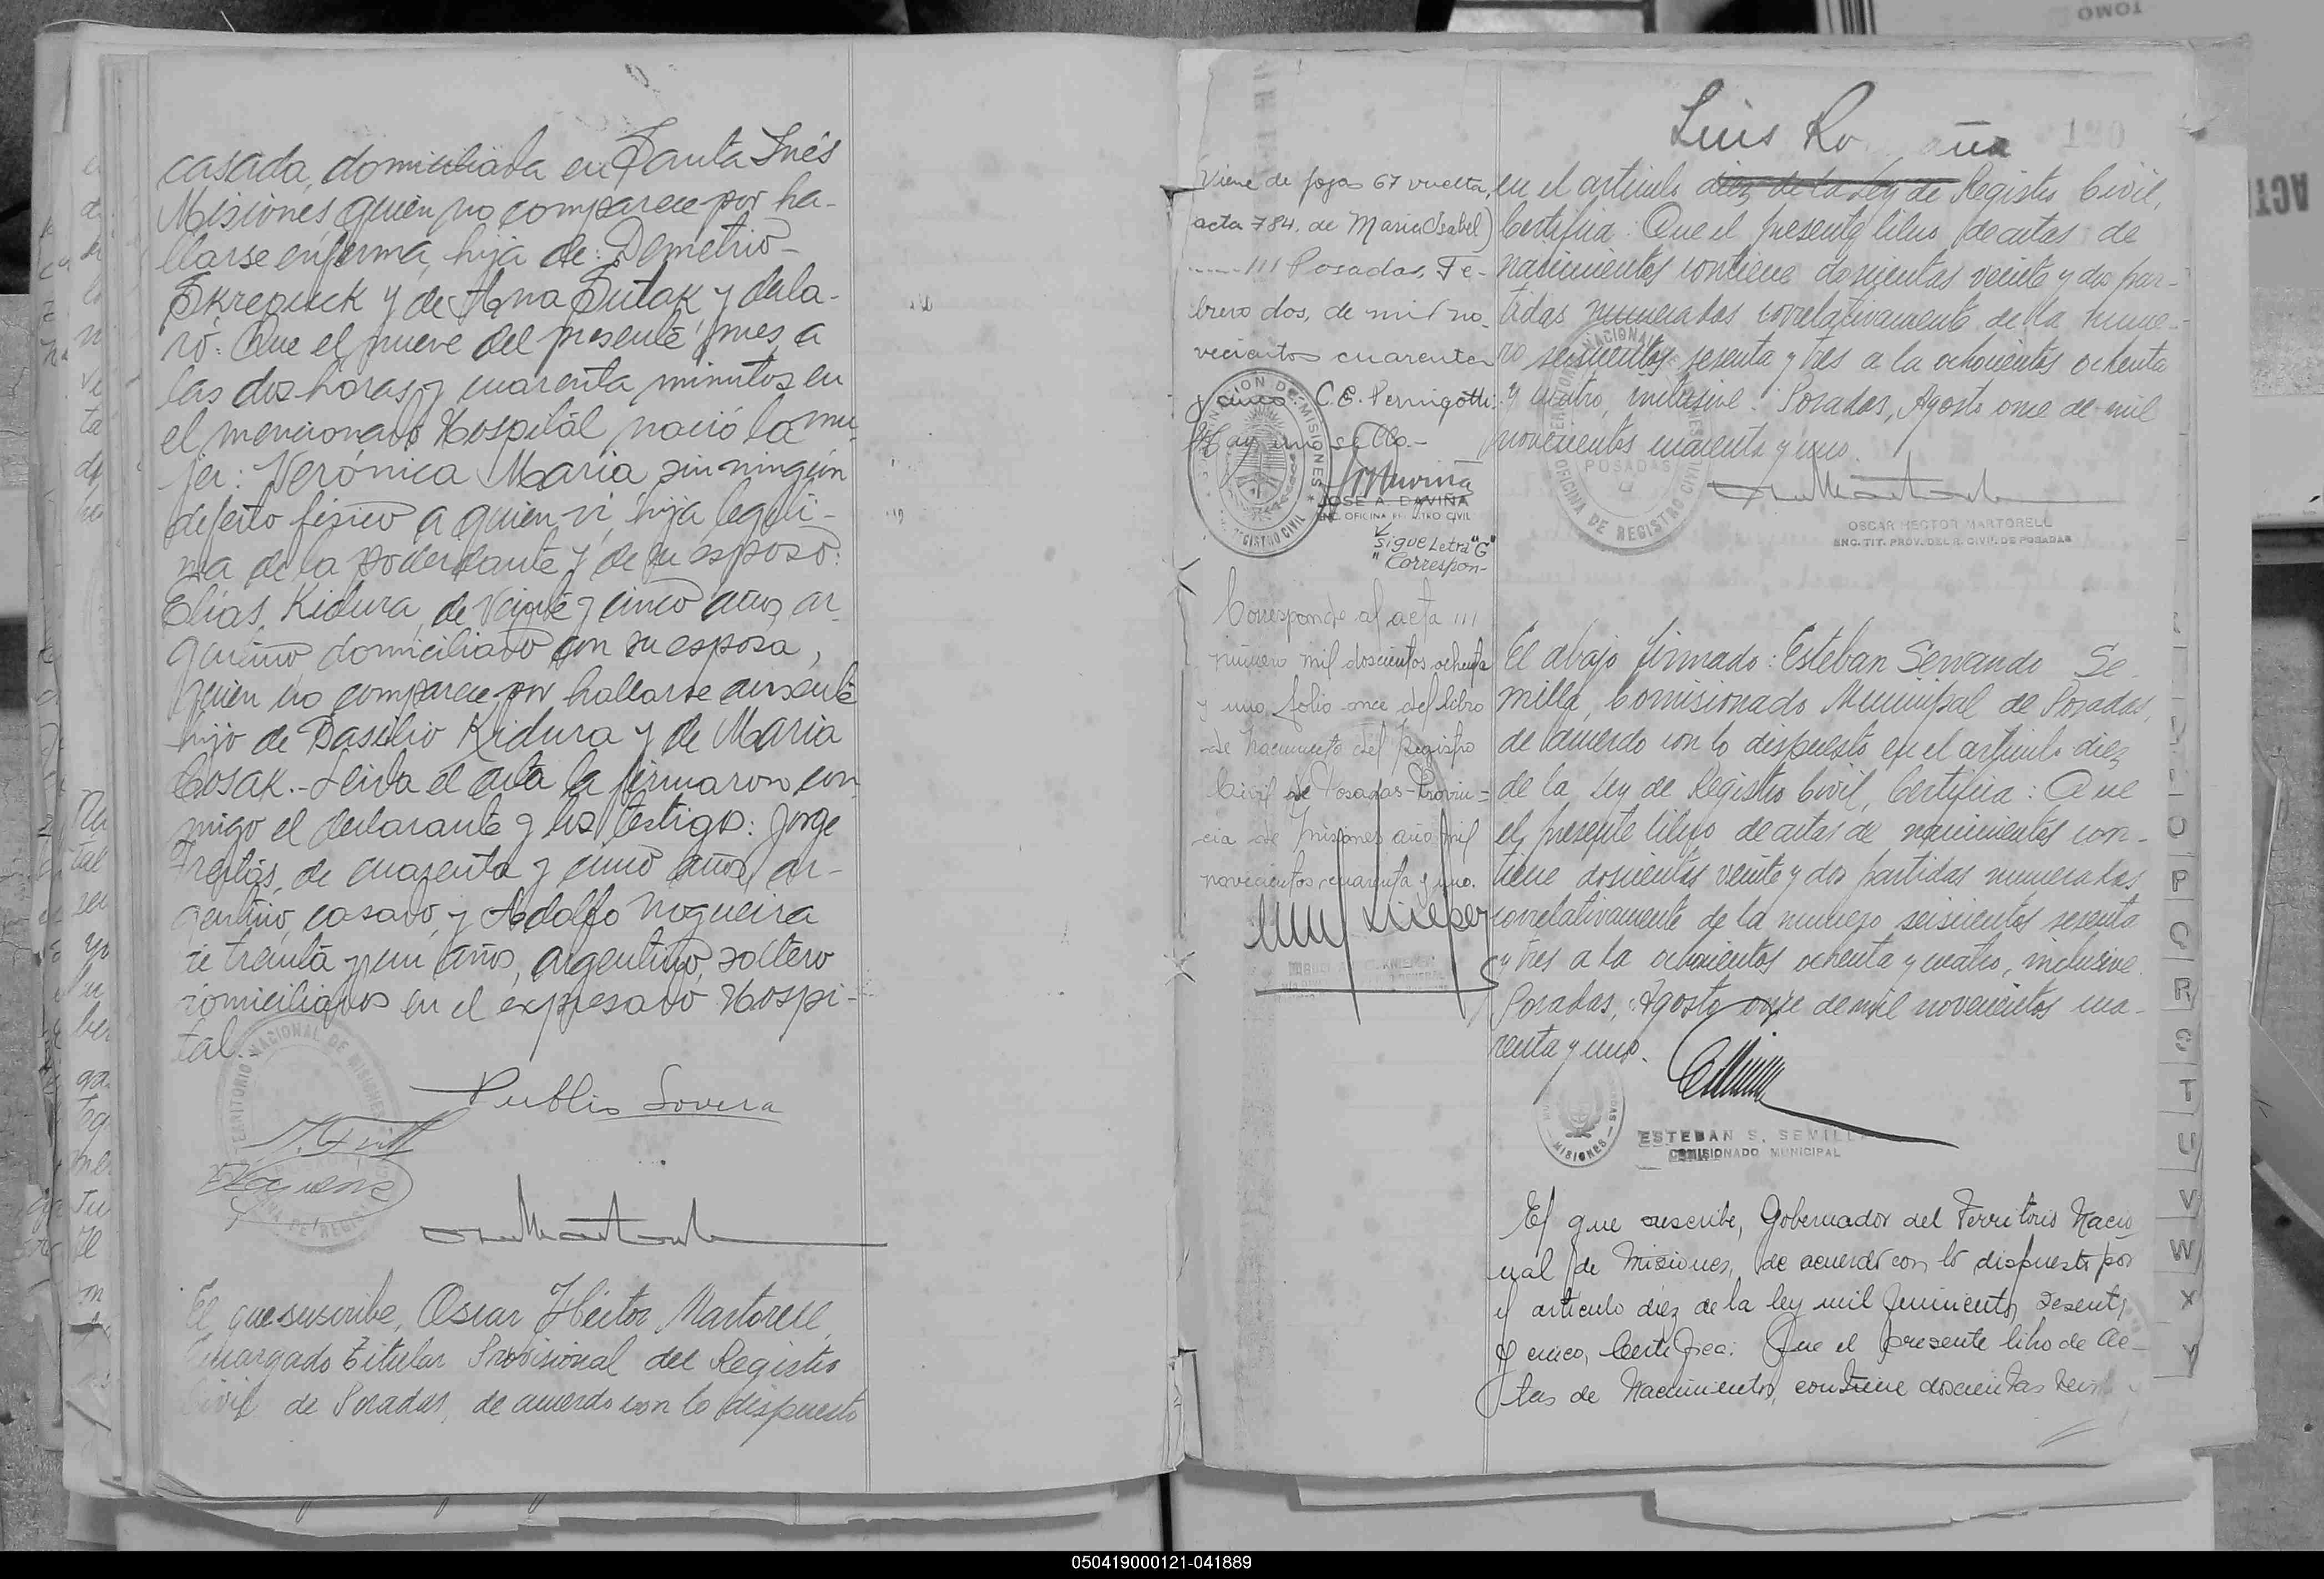 casada, domiciliada en Santa Inés
Misiones, quien no comparece por ha-
llarse enferma, hija de: Demetrio
Skrepiuck y de Ana Sutak, y decla-
ró: Que el nueve del presente mes, a
las dos horas y cuarenta minutos en
el mencionado Hospital nació la mu-
jer: Verónica María sin ningún
defecto físico a quien vi, hija legíti-
ma de la poderdante y de su esposo:
Elías Kidura, de veinte y cinco años, ar-
gentino domiciliado con su esposa,
quien no comparece por hallarse ausente
hijo de Basilio Kidura y de María
Cosak.- Leida el acta la firmaron con-
migo el declarante y los testigos: Jorge
de cuarenta y cinco años, ar-
gentino, casado, y Adolfo Nogueira
de treinta y un años, argentino, soltero
domiciliados en el expresado Hospi-
tal.-
TERRITORIO NACIONAL DE MISIONES
Publio Lovera
El que suscribe, Oscar Héctor Martorell,
Encargado Titular Provisional del Registro
Civil de Posadas, de acuerdo con lo dispuesto
Luis Ro aña
120
Viene de fojas 67 vuelta,
acta 784. de María Isabel)
----- /// Posadas, Fe-
brero dos, de mil no-
vecientos cuarenta
y cinco: C.E. Pernigotti:
Hay un sello.-
REGISTRO CIVIL
JOSE A. DAVIÑA
ENC. OFICINA REGISTRO CIVIL
Sigue Letra "G"
"Correspon-
Corresponde al acta ///
número mil doscientos ochenta
y uno, folio once del libro
de nacimiento del Registro
Civil de Posadas-Provin=
cia de Misiones año mil
novecientos cuarenta y uno.
en el artículo diez de la Ley de Registro Civil,
Certifica: Que el presente libro de actas de
nacimientos contiene doscientas veinte y dos par-
tidas numeradas correlativamente de la núme-
ro seiscientos sesenta y tres a la ochocientos ochenta
y cuatro, inclusive. Posadas, Agosto once de mil
novecientos cuarenta y uno.
POSADAS
OFICINA DE REGISTRO CIVIL
OSCAR HECTOR MARTORELL
ENC. TIT. PROV. DEL R. CIVIL DE POSADAS
El abajo firmado: Esteban Servando Se-
milla, Comisionado Municipal de Posadas,
de acuerdo con lo dispuesto en el artículo diez
de la Ley de Registro Civil, Certifica: Que
el presente libro de actas de nacimientos con-
tiene doscientas veinte y dos partidas numeradas
correlativamente de la número seiscientos sesenta
y tres a la ochocientos ochenta y cuatro, inclusive.
Posadas, Agosto once de mil novecientos cua-
renta y uno.
MISIONES
ESTEBAN S. SEMILLA
COMISIONADO MUNICIPAL
El que suscribe, Gobernador del Territorio Nacio
nal de Misiones, de acuerdo con lo dispuesto por
el artículo diez de la ley mil quinientos sesenta
y cinco, Certifica: Que el presente libro de Ac-
tas de Nacimientos, contiene doscientas vein
O
P
Q
R
S
T
U
V
W
X
Y
TOMO
ACT
050419000121-041889